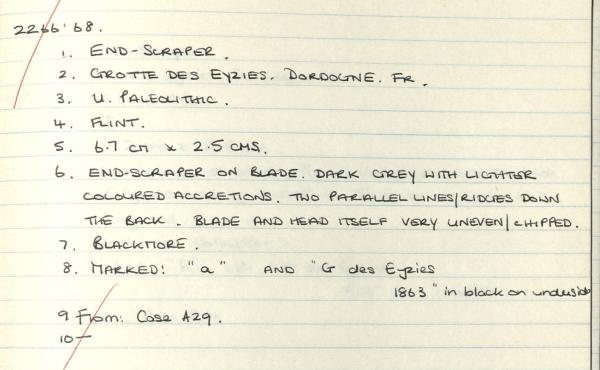 2266'68.
1. END-SCRAPER.
2. GROTTE DES EYZIES. DORDOGNE. FR.
3. U. PALEOLITHIC.
4. FLINT.
5. 6.7 cm x 2.5 CMS.
6. END-SCRAPER ON BLADE. DARK GREY WITH LIGHTER
COLOURED ACCRETIONS. TWO PARALLEL LINES/RIDGES DOWN
THE BACK. BLADE AND HEAD ITSELF VERY UNEVEN/CHIPPED.
7. BLACKMORE.
8. MARKED: "a" AND "G des Eyzies
1863" in black on undersid
9 From: Case A29.
10 —